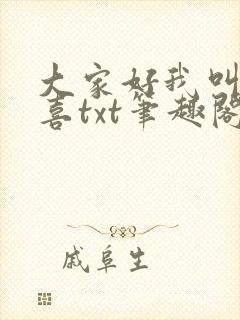 大家好我叫
喜txt笔趣阁
戚阜生